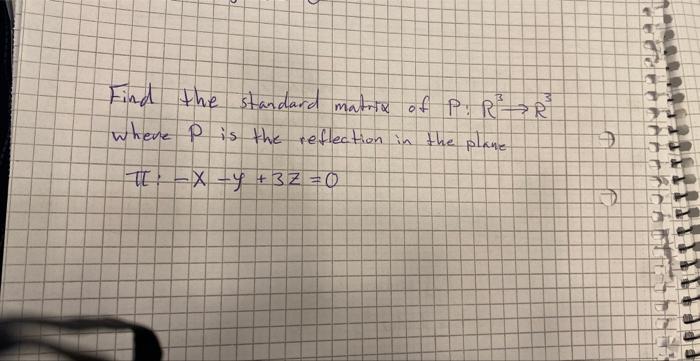 Find the standard matrix of P: R³→R³
where P is the reflection in the plane
π: -x -y +3z =0